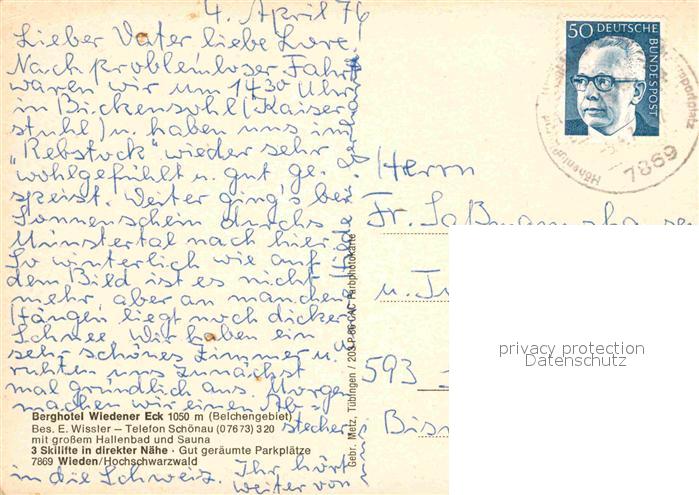 4. April 76
Lieber Vater liebe Lore
Nach problemloser Fahrt
waren wir um 1430 Uhr
in Bickensohl (Kaiser
stuhl) u. haben uns im
"Rebstock" wieder sehr
wohlgefühlt u. gut ge-
speist. Weiter ging's bei
Sonnenschein durchs
Münstertal nach hier.
So winterlich wie auf
dem Bild ist es nicht
mehr, aber an manchen
Hängen liegt noch dicker
Schnee. Wir haben ein
sehr schönes Zimmer u.
ruhten uns zunächst
mal gründlich aus. Morgen
machen wir einen Ab-
stecher
in die Schweiz. Ihr hört
weiter von
Berghotel Wiedener Eck 1050 m (Belchengebiet)
Bes. E. Wissler – Telefon Schönau (07673) 320
mit großem Hallenbad und Sauna
3 Skilifte in direkter Nähe · Gut geräumte Parkplätze
7869 Wieden/Hochschwarzwald
Gebr. Metz, Tübingen / 203 P 66 CAC Farbphotokarte
50 DEUTSCHE
BUNDESPOST
7869
Herrn
Fr.
u.
593
privacy protection
Datenschutz